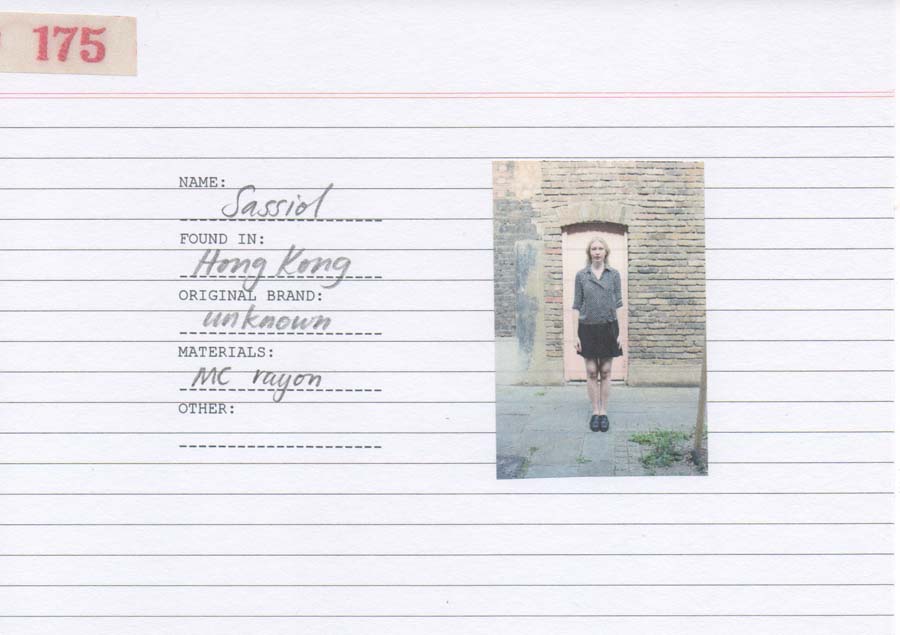 175
NAME:
Sassiol
FOUND IN:
Hong Kong
ORIGINAL BRAND:
unknown
MATERIALS:
MC rayon
OTHER: